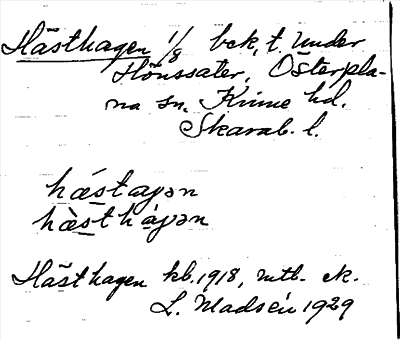 Hästhagen 1/8 bek. t. under
Hönssäter, Österpla-
na sn, Kinne hd.
Skarab. l.
hǽstaɡən
hæ̀sthàɡən
Hästhagen kb. 1918, mtb. ek.
L. Madsén 1929